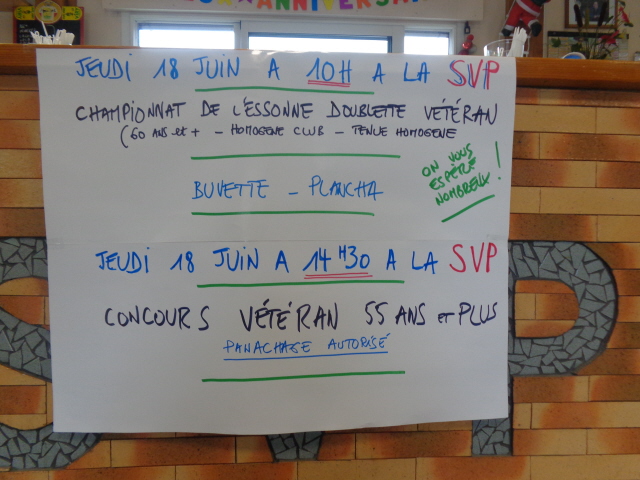 ANNIVERSA
JEUDI 18 JUIN A 10H A LA SVP
CHAMPIONNAT DE L'ESSONNE DOUBLETTE VÉTÉRAN
(60 ANS et + - HOMOGENE CLUB - TENUE HOMOGENE
ON VOUS
ESPÈRE
NOMBREUX !
BUVETTE - PLANCHA
JEUDI 18 JUIN A 14H30 A LA SVP
CONCOURS VÉTÉRAN 55 ANS et PLUS
PANACHAGE AUTORISÉ
SVP